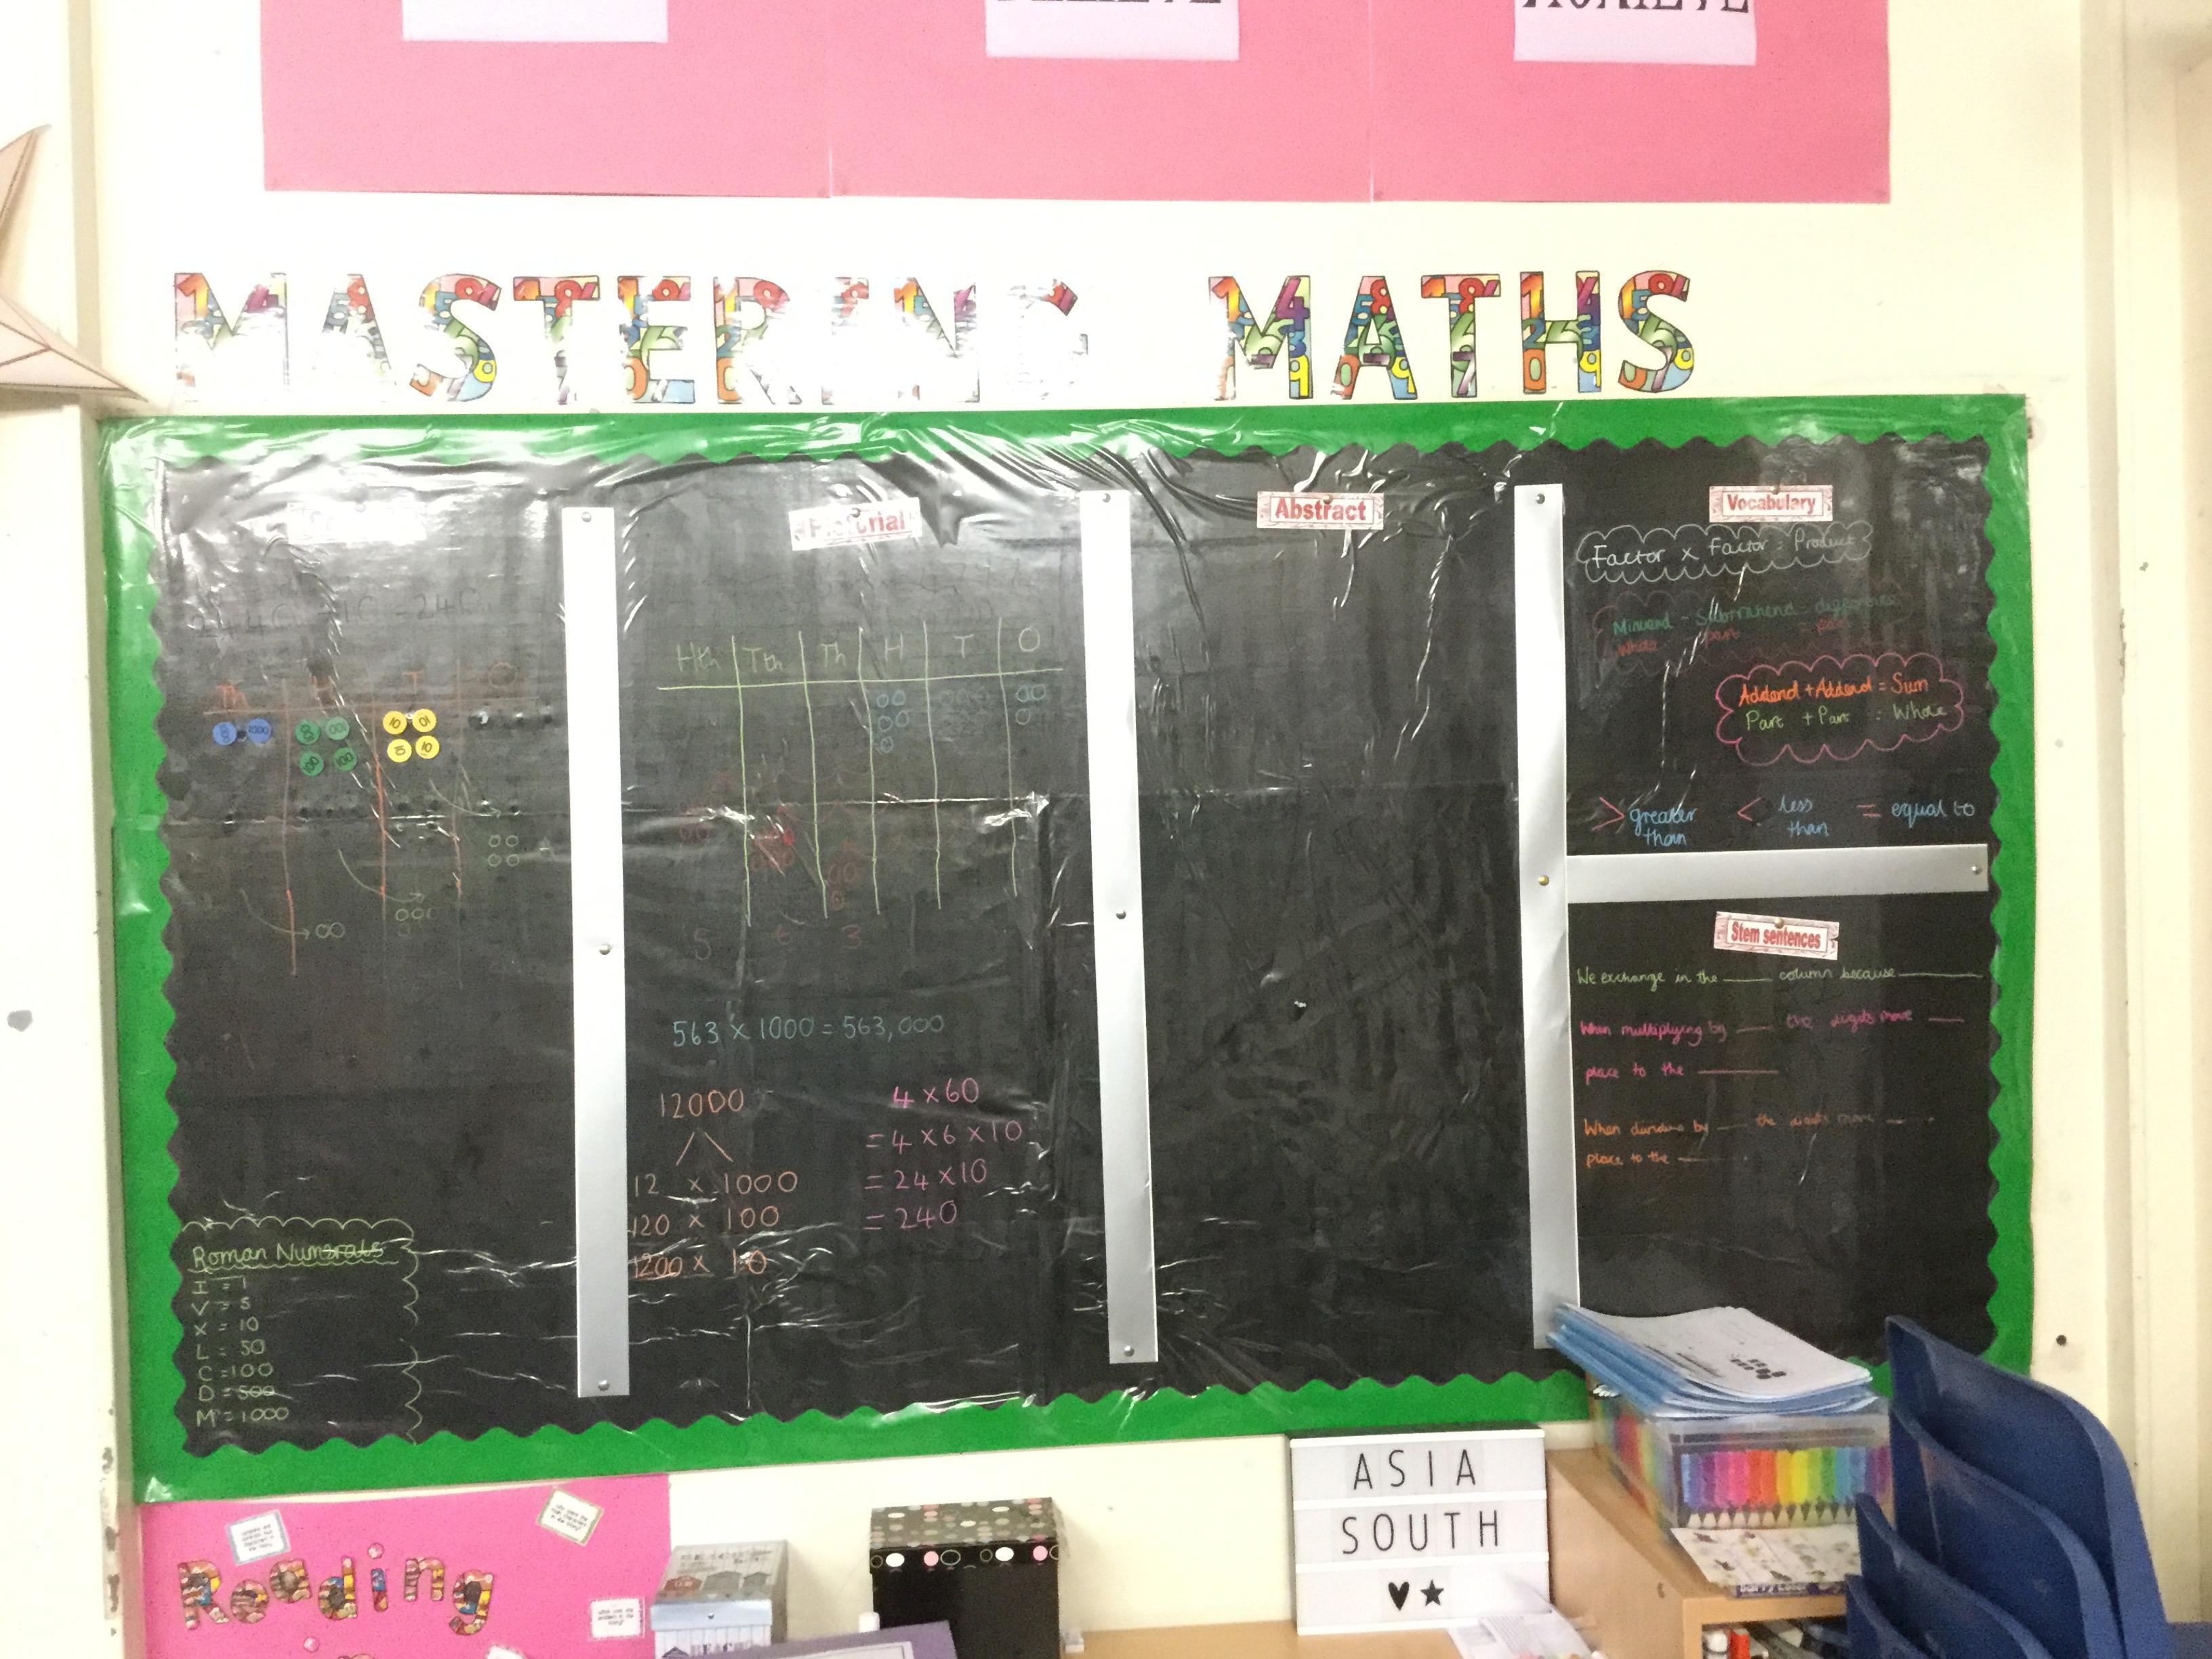 MASTERING MATHS
Pictorial
Abstract
Vocabulary
Th H T O
1000
100 100
100 100
10 10
10 10
Roman Numerals
I = 1
V = 5
X = 10
L = 50
C = 100
D = 500
M = 1000
Hth Tth Th H T O
5 6 3
563 x 1000 = 563,000
12000
12 x 1000
120 x 100
1200 x 10
4 x 60
= 4 x 6 x 10
= 24 x 10
= 240
Factor x Factor = Product
Minuend - Subtrahend = difference
Whole part = part
Addend + Addend = Sum
Part + Part = Whole
> greater than
< less than
= equal to
Stem sentences
We exchange in the ____ column because ____
When multiplying by ____ the digits move ____
place to the ____
When dividing by ____ the digits move ____
place to the ____
ASIA
SOUTH
♥★
Reading